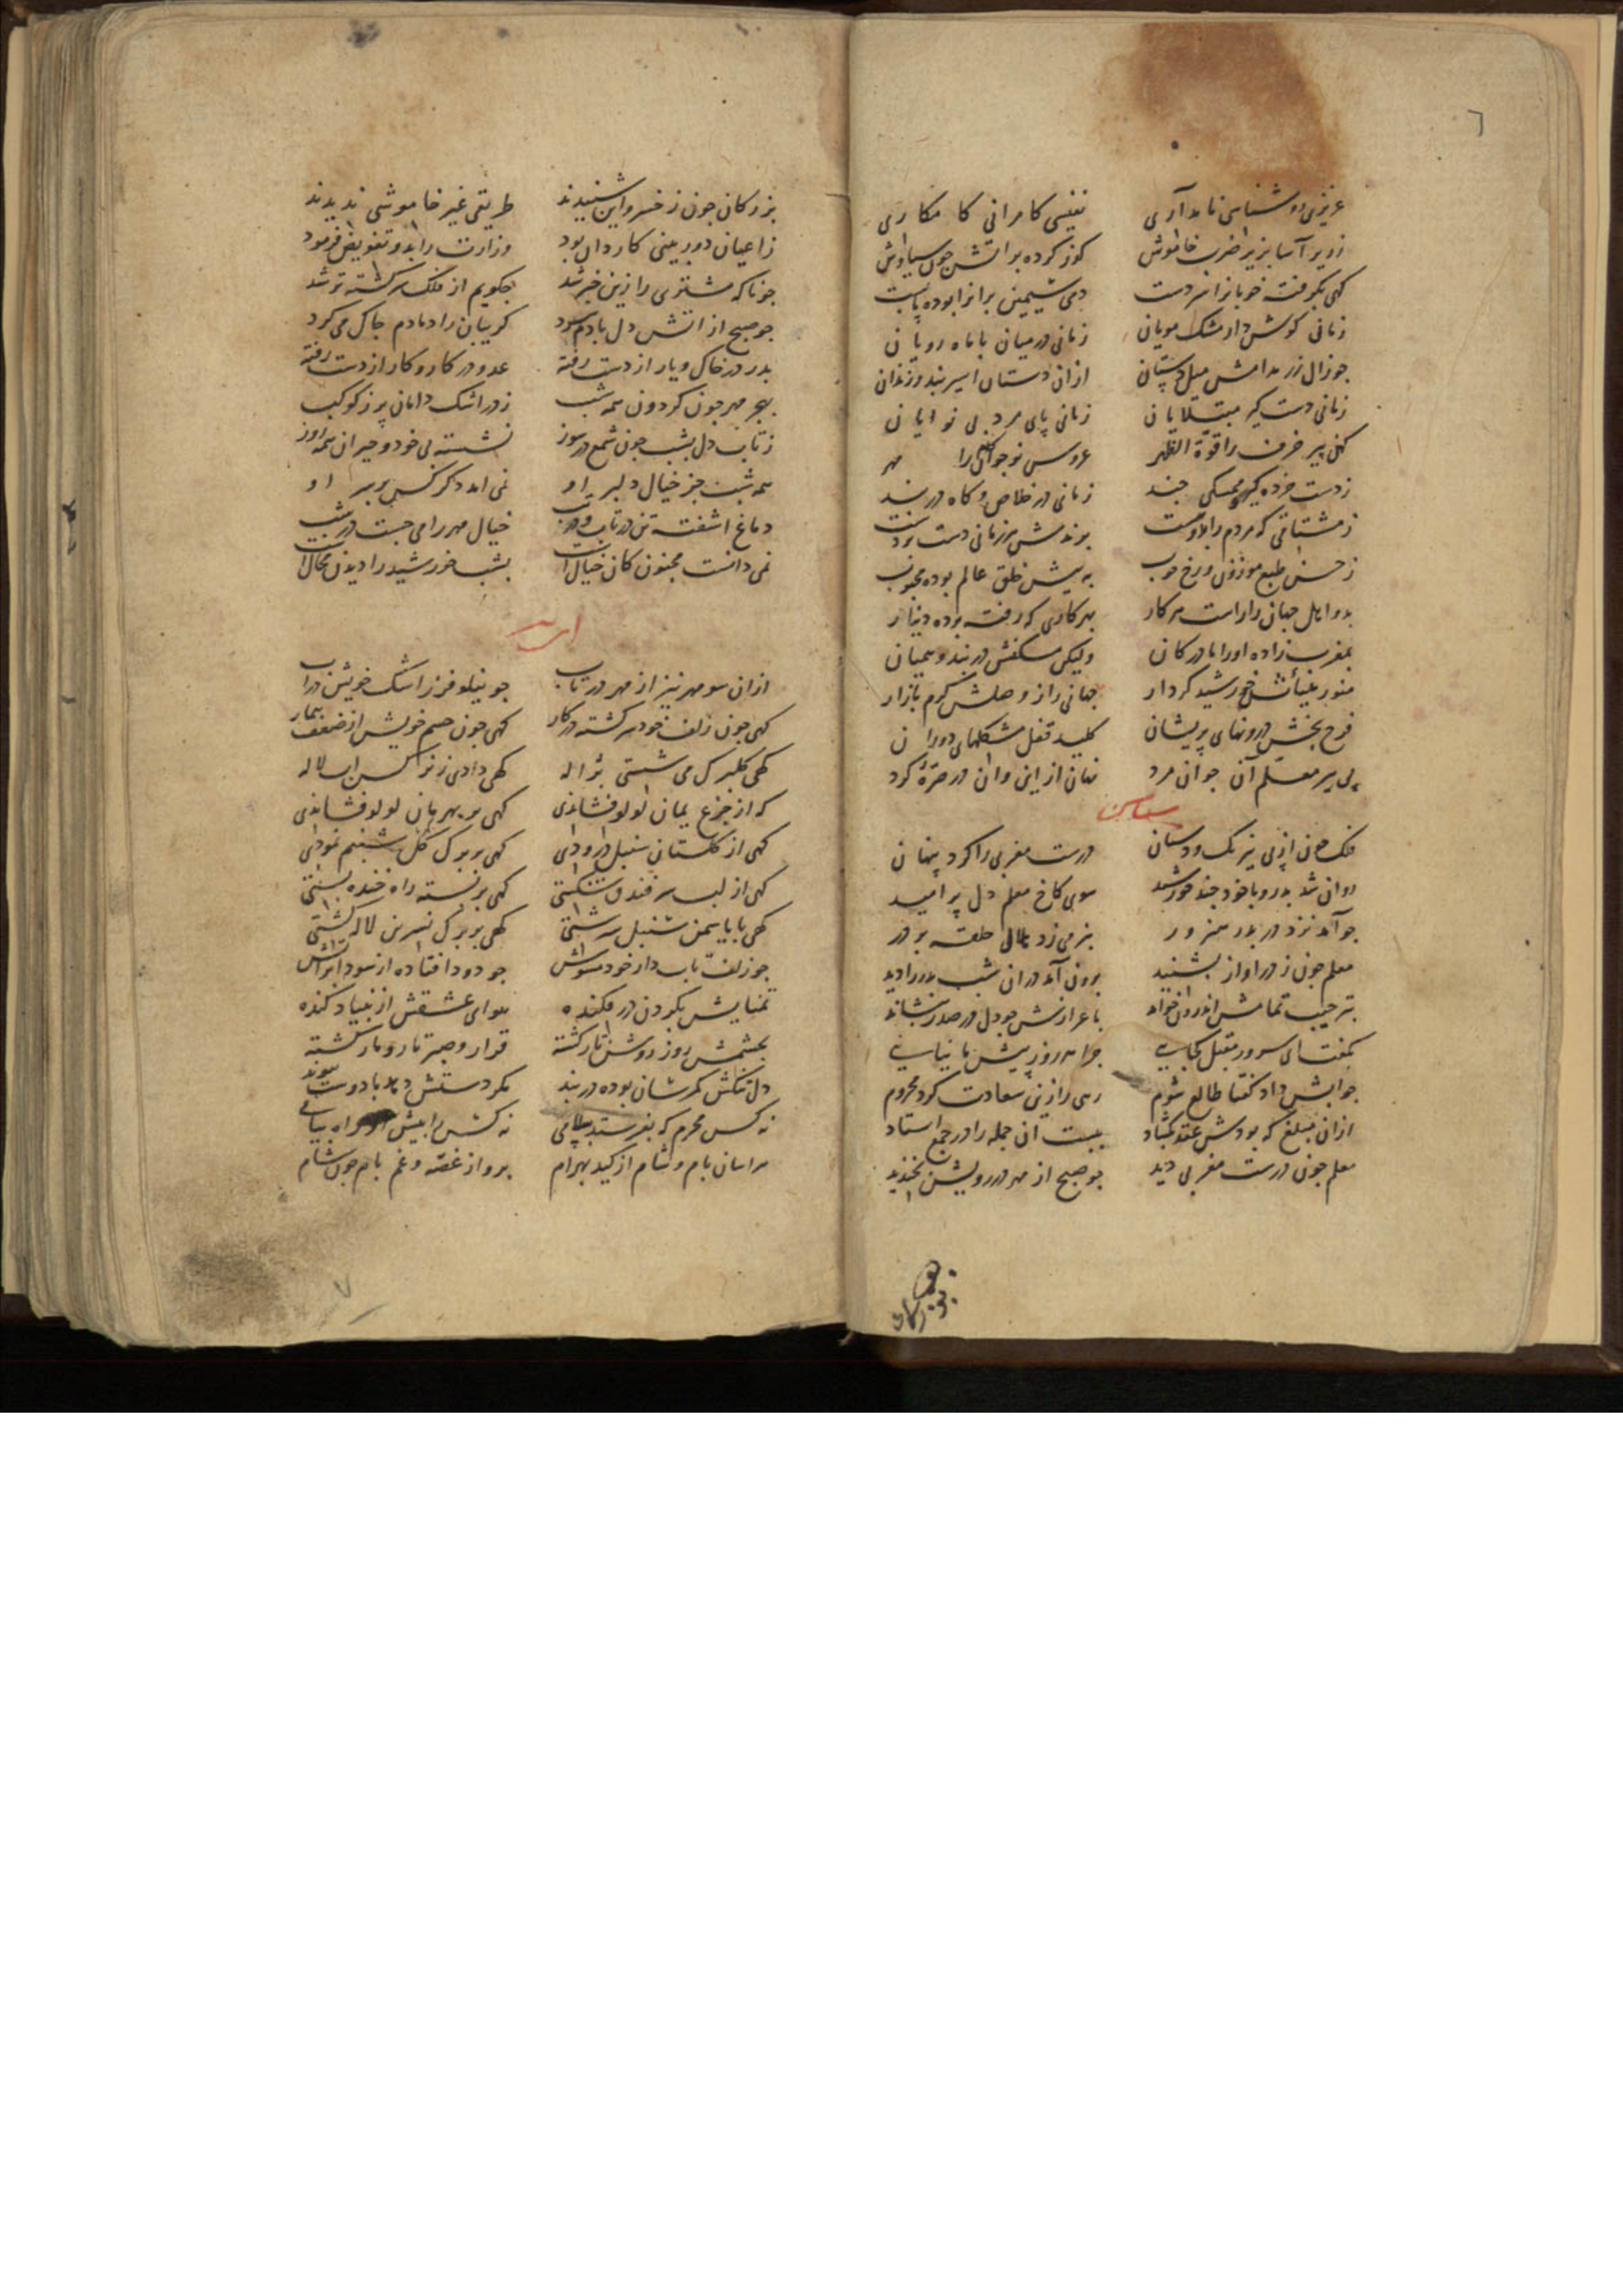 ٦
عزیزی روشناسی نامداری نفیسی کامرانی کامکاری
زویر آسا بزیر ضرب خاموش گذر کرده بر آتش چون سیاوش
گهی بگرفته خوبانرا سر دست دمی سیمین برانرا بوده پابست
زمانی گوش دار مشک مویان زمانی در میان با ماه رویان
چو زال زر مدامش میل دستان ازان دستان اسیر بند و زندان
زمانی دست گیر مبتلایان زمانی پای مرد بی نوایان
کهن پیر خرف را قوة الظهر عروس نوجوانی را مهر
زدست خرده گیر ممسکی چند زمانی در خلاص و گاه در بند
ز مشتاقی که مردم را بدوست بوندش هر زمانی دست بر دست
ز حسن طبع موزون و رخ خوب به پیش خلق عالم بوده محبوب
بدو اهل جهان را راست هر کار بهر کاری که رفته بوده دینار
بمغرب زاده او را مادر کان ولیکن مسکنش در بند و همیان
منور خورشید کردار جهانی را ز وصلش گرم بازار
فرح بخش درونهای پریشان کلید قفل مشکلهای دوران
پی پیر معلم آن جوان مرد نهان از این و آن در صره کرد
فلک چون از پی نیرنگ و دستان درست مغربی را کرد پنهان
روان شد بدر و با خود چند خورشید سوی کاخ معلم دل پر امید
چو آمد نزد در بدر هنرور بنرمی زد هلالی حلقه بر در
معلم چون ز در آواز بشنید برون آمد در آن شب بدر را دید
بترحیب تمامش اندرون خواند باعزازش چو دل در صدر بنشاند
بگفت ای سرور مقبل کجایی چرا هر روز پیش ما نیایی
جوابش داد گفتا طالع شوم رهی را زین سعادت کرد محروم
ازان مبلغ که بودش عقد بگشاد ببست آن جمله را در جمع استاد
معلم چون درست مغربی دید چو صبح از مهر در رویش بخندید
بزرگان چون ز خسرو این شنیدند طریقی غیر خاموشی ندیدند
ز اعیان دوربینی کاردان بود وزارت را بدو تفویض فرمود
چو ناگه مشتری را زین خبر شد بگویم از فلک سرگشته تر شد
چو صبح از آتش دل با دم سرد گریبان را دمادم چاک می کرد
پدر در خاک و یار از دست رفته عدو در کار و کار از دست رفته
بهجر مهر چون گردون همه شب ز در اشک دامان پر ز کوکب
ز تاب دل بشب چون شمع در سوز نشسته بی خود و حیران همه روز
همه شب جز خیال دلبر او نمی آمد دگر کس بر سر او
دماغ آشفته تن در تاب و در تب خیال مهر را می جست در شب
نمی دانست مجنون کان خیالست بشب خورشید را دیدن محالست
ازان سو مهر نیز از مهر در تاب چو نیلوفر ز اشک خویش در آب
گهی چون زلف خود سرگشته در کار گهی چون چشم خویش از ضعف بیمار
گهی گلبرگ می شستی بژاله گهی دادی ز نرگس آب لاله
گه از جزع یمان لولو فشاندی گهی بر بهرمان لولو فشاندی
گهی از گلستان سنبل درودی گهی بر برگ گل شبنم نمودی
گهی از لب سر فندق شکستی گهی بر پسته راه خنده بستی
گهی با یاسمن سنبل سرشتی گهی بر برگ نسرین لاله کشتی
چو زلف تاب دار خود مشوش چو دود افتاده از سودا بر آتش
تمنایش بگردن در فکنده هوای عشقش از بنیاد کنده
بچشمش روز روشن تار گشته قرار و صبر تار و مار گشته
دل تنگش کمرشان بوده در بند مگر دستش دهد با دوست پیوند
نه کس محرم که بفرستد پیامی نه کس را پیش او راه سلامی
هراسان بام و شام از کید بهرام برو از غصه و غم بام چون شام
٧